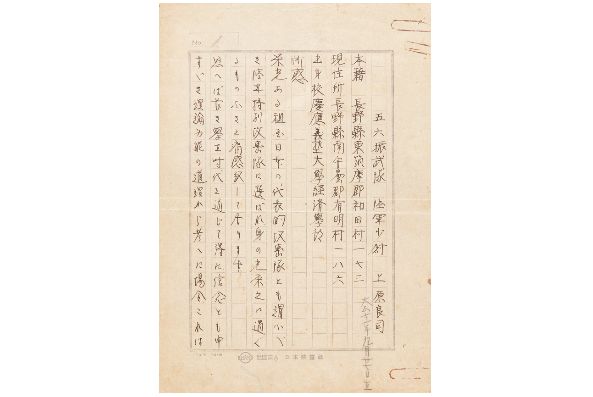 No. 1
五六振武隊 陸軍少尉 上原良司
大正十一年九月二十七日生
本籍 長野縣東筑摩郡和田村一七二
現住所 長野縣南安曇郡有明村一八六
出身校 慶應義塾大學経済學部
所感
栄光ある祖国日本の代表的攻撃隊とも謂ふべ
き陸軍特別攻撃隊に選ばれ身の光栄之に過ぐ
るものなきと痛感致して居ります
思へば長き學生時代を通じて得た信念とも申
すべき理論万能の道理から考へた場合これは